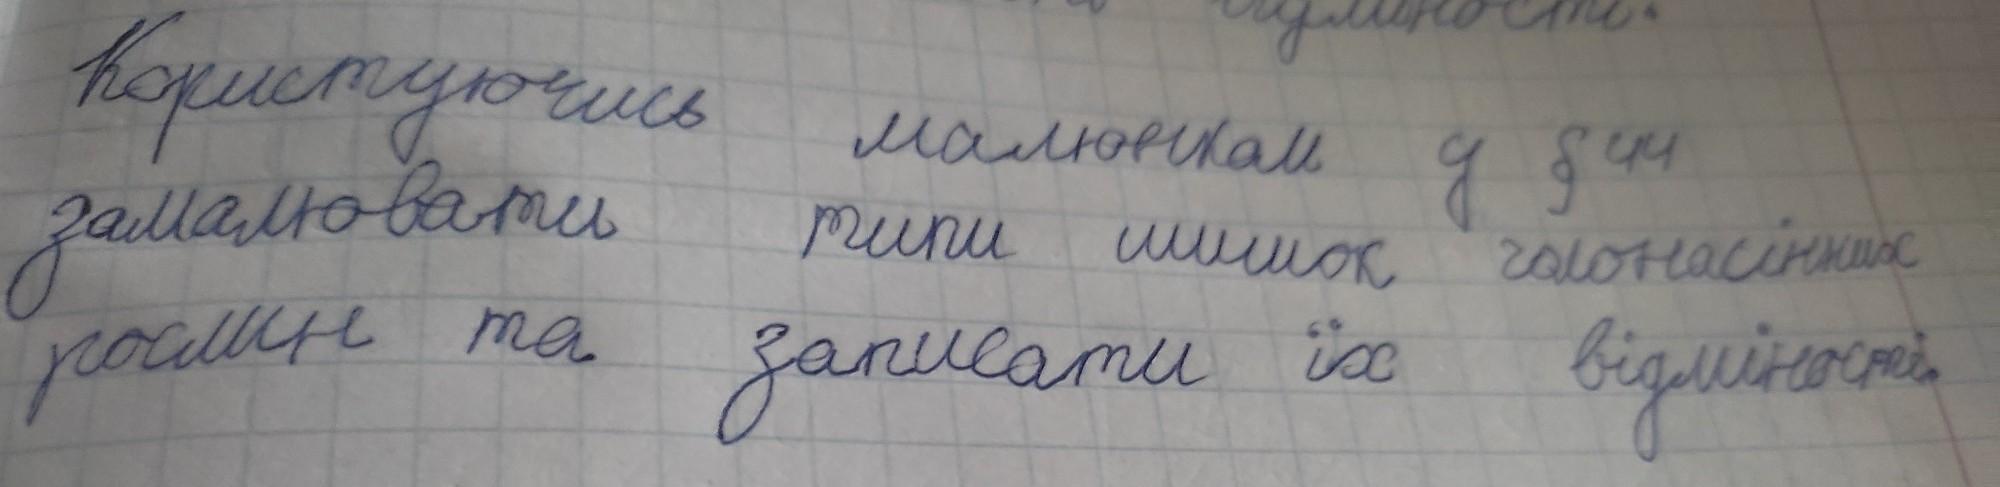 відмінності.
Користуючись малюнкам у § 44
замалювати типи шишок голонасінних
рослин та записати їх відмінності.